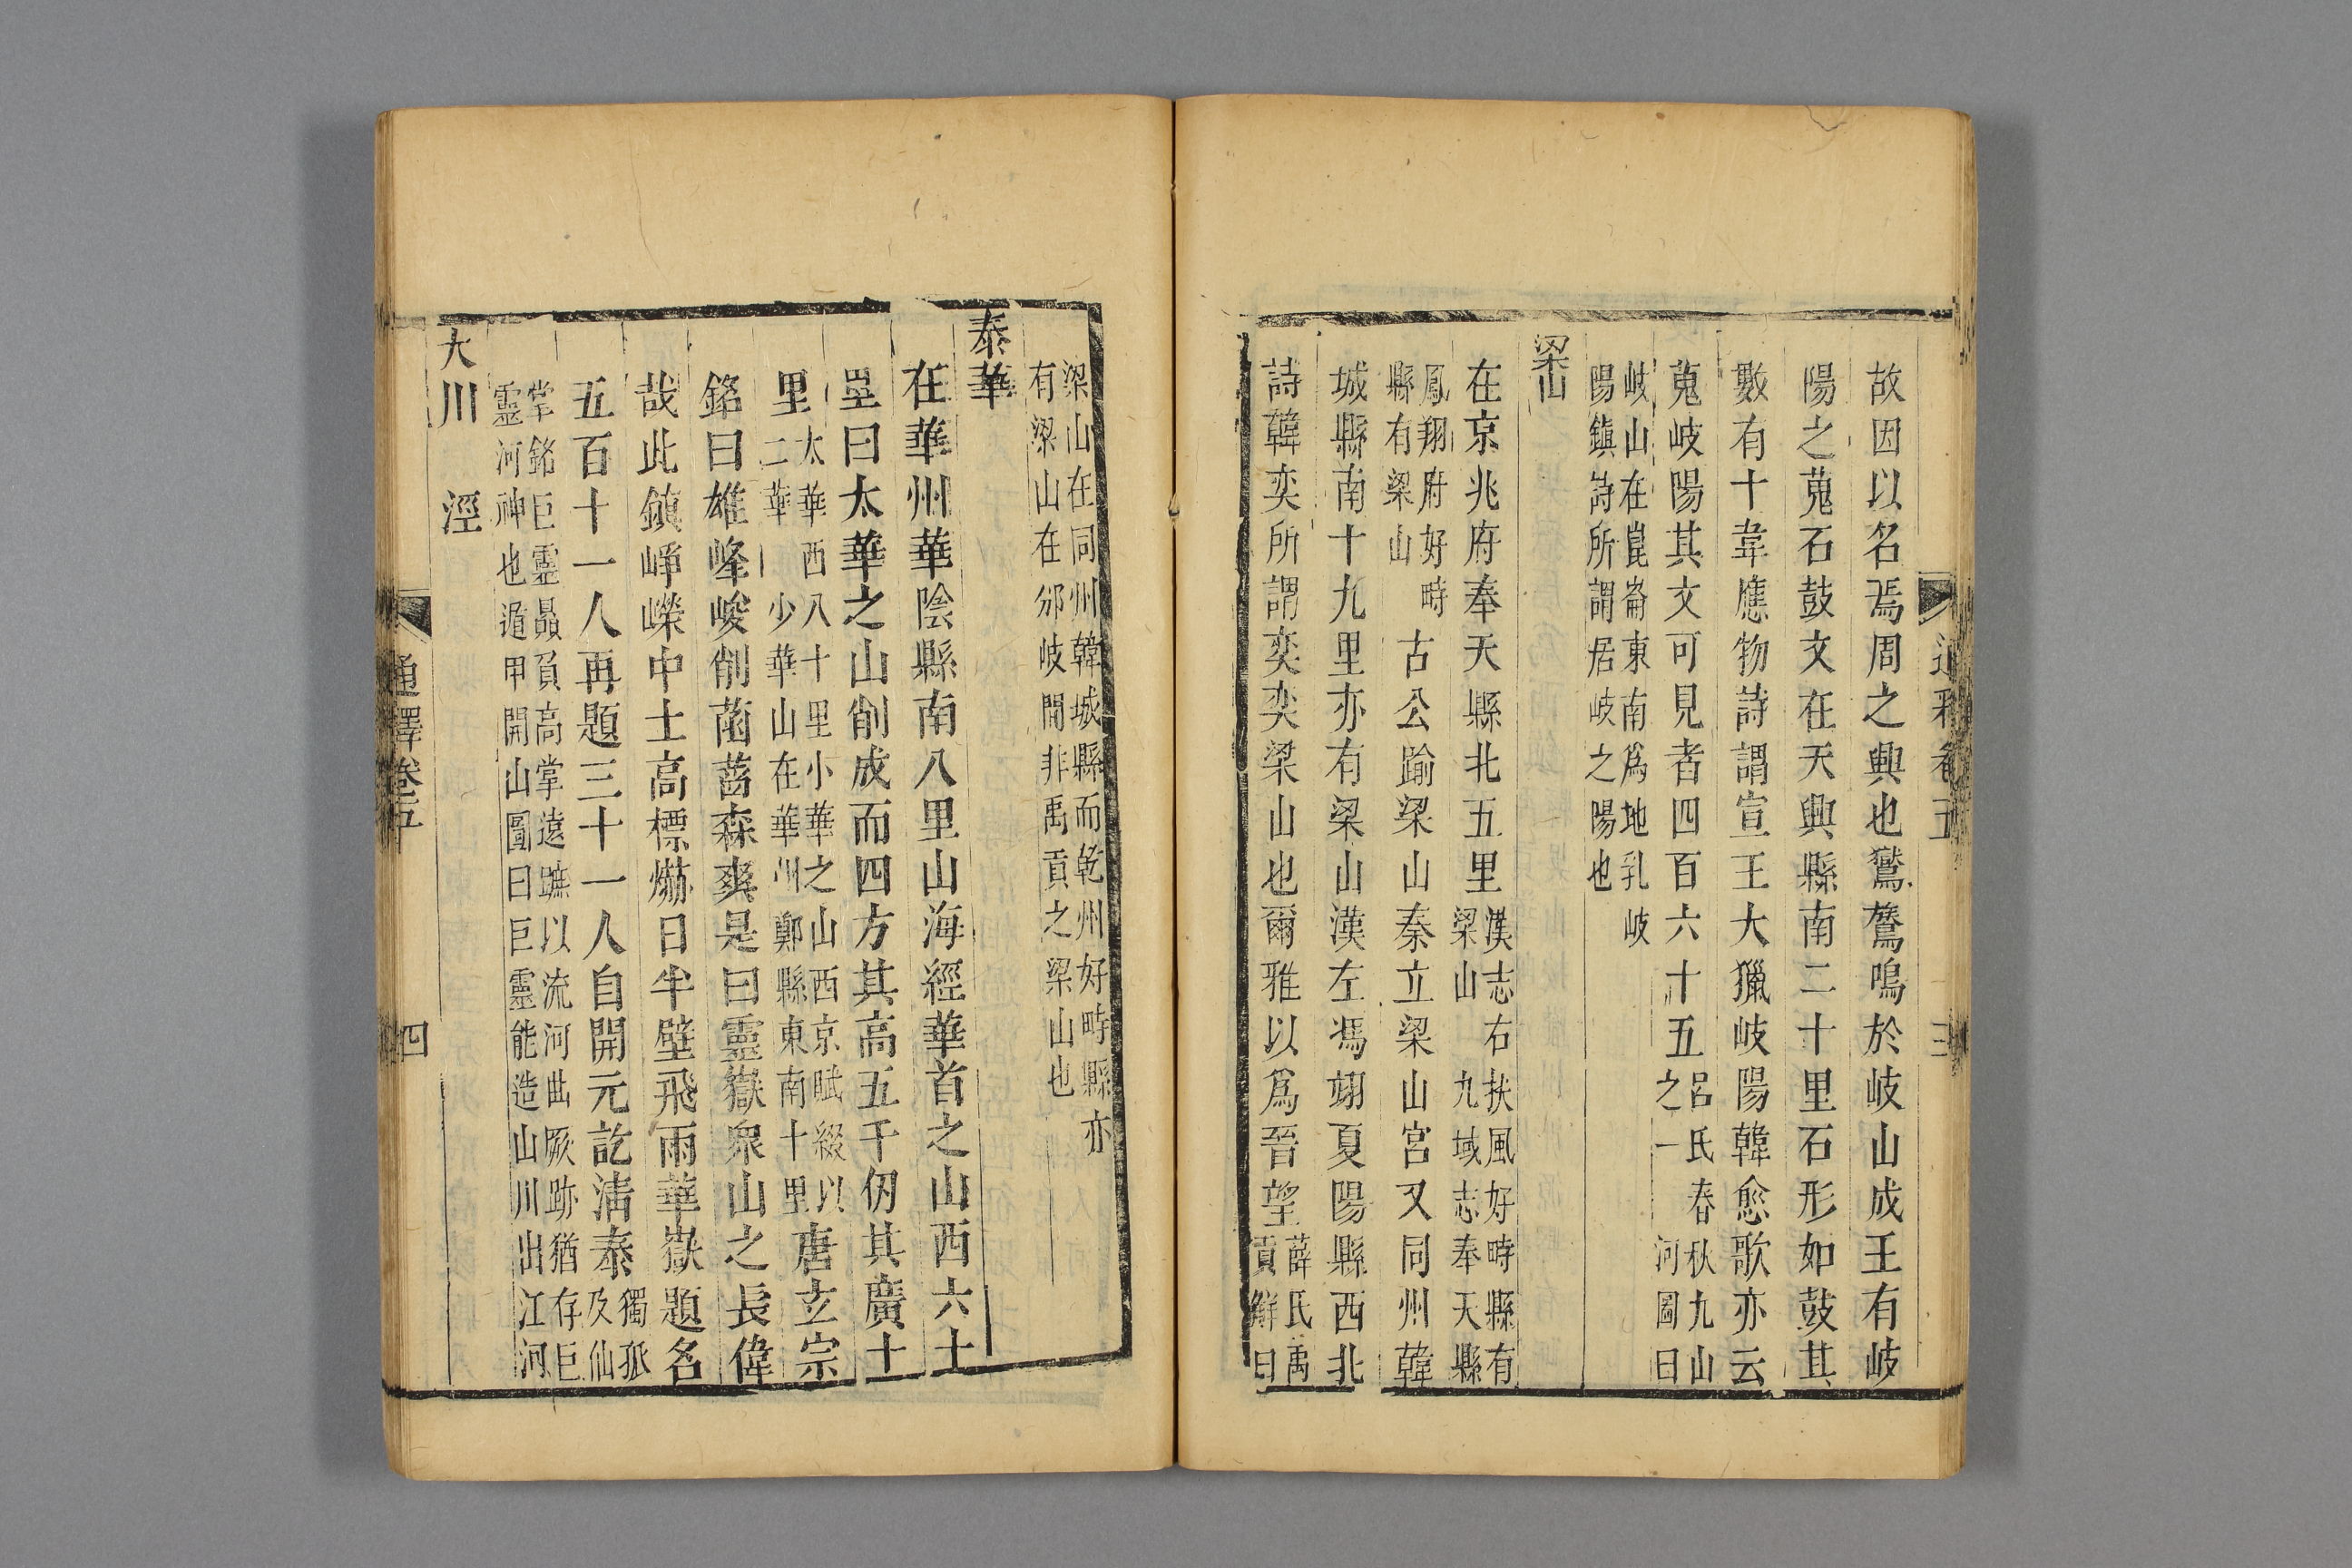 故因以名焉周之興也鸑鷟鳴於岐山成王有岐
陽之蒐石鼓文在天興縣南二十里石形如鼓其
數有十韋應物詩謂宣王大獵岐陽韓愈歌亦云
蒐岐陽其文可見者四百六十五呂氏春秋九山
之一河圖曰
岐山在崑崙東南為地乳岐
陽鎮詩所謂居岐之陽也
梁山
在京兆府奉天縣北五里漢志右扶風好畤縣有
梁山九域志奉天縣
鳳翔府好畤
縣有梁山
古公踰梁山秦立梁山宮又同州韓
城縣南十九里亦有梁山漢左馮翊夏陽縣西北
詩韓奕所謂奕奕梁山也爾雅以爲晉望薛氏禹
貢解曰
三
梁山在同州韓城縣而乾州好畤縣亦
有梁山在邠岐間非禹貢之梁山也
泰華
在華州華陰縣南八里山海經華首之山西六十
里曰太華之山削成而四方其高五千仞其廣十
里
太華西八十里小華之山西京賦綴以
二華少華山在華州鄭縣東南十里
唐玄宗
銘曰雄峰峻削菡萏森爽是曰靈嶽衆山之長偉
哉此鎮崢嶸中土高標爀日半壁飛雨華嶽題名
五百十一人再題三十一人自開元訖清泰獨孤
及仙
掌銘巨靈贔負高掌遠蹠以流河曲厥跡猶存巨
靈河神也遁甲開山圖曰巨靈能造山川出江河
大川
涇
通釋卷五
四